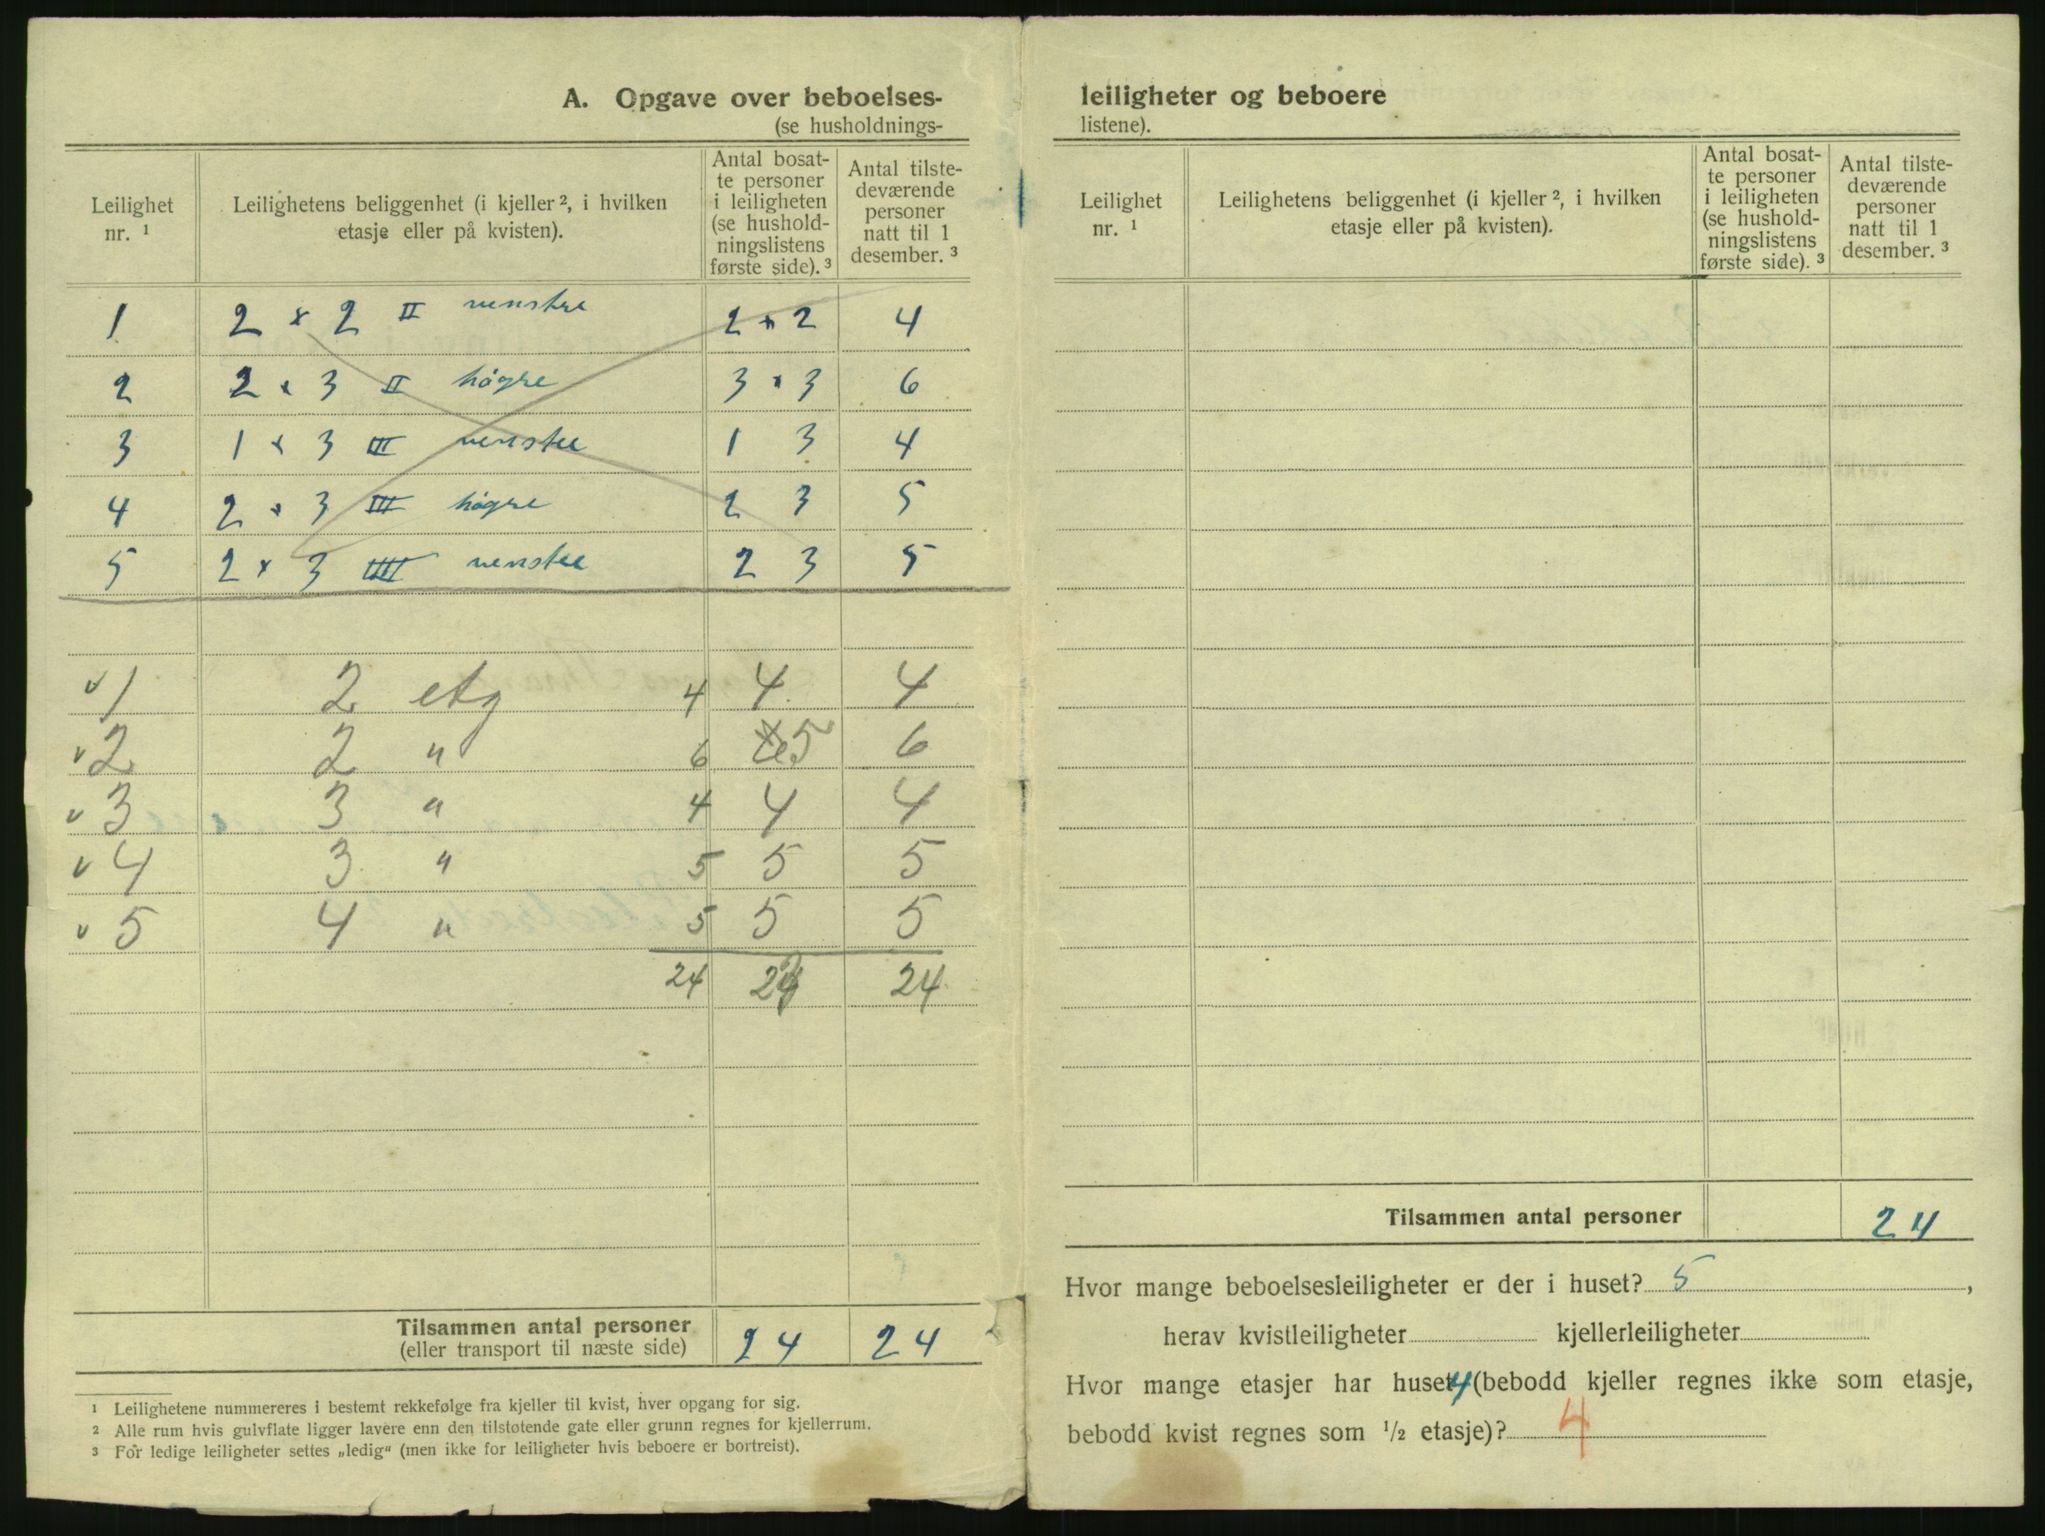 A. Opgave over beboelses-
(se husholdnings-
Leilighet nr. ¹
Leilighetens beliggenhet (i kjeller ², i hvilken etasje eller på kvisten).
Antal bosat-te personer i leiligheten (se hushold-ningslistens første side). ³
Antal tilste-deværende personer natt til 1 desember. ³
1 2 × 2 II venstre 2 × 2 4
2 2 × 3 II högre 3 × 3 6
3 1 × 3 III venstre 1 3 4
4 2 × 3 III högre 2 3 5
5 2 × 3 IIII venstre 2 3 5
v 1 2 etg 4 4 4
v 2 2 " 6 5 6
v 3 3 " 4 4 4
v 4 3 " 5 5 5
v 5 4 " 5 5 5
24 24
Tilsammen antal personer 24 24
(eller transport til næste side)
¹ Leilighetene nummereres i bestemt rekkefølge fra kjeller til kvist, hver opgang for sig.
² Alle rum hvis gulvflate ligger lavere enn den tilstøtende gate eller grunn regnes for kjellerrum.
³ For ledige leiligheter settes „ledig“ (men ikke for leiligheter hvis beboere er bortreist).
leiligheter og beboere
listene).
Leilighet nr. ¹
Leilighetens beliggenhet (i kjeller ², i hvilken etasje eller på kvisten).
Antal bosat-te personer i leiligheten (se hushold-ningslistens første side). ³
Antal tilste-deværende personer natt til 1 desember. ³
Tilsammen antal personer 24
Hvor mange beboelsesleiligheter er der i huset? 5,
herav kvistleiligheter kjellerleiligheter
Hvor mange etasjer har huset 4 (bebodd kjeller regnes ikke som etasje,
bebodd kvist regnes som ½ etasje)? 4